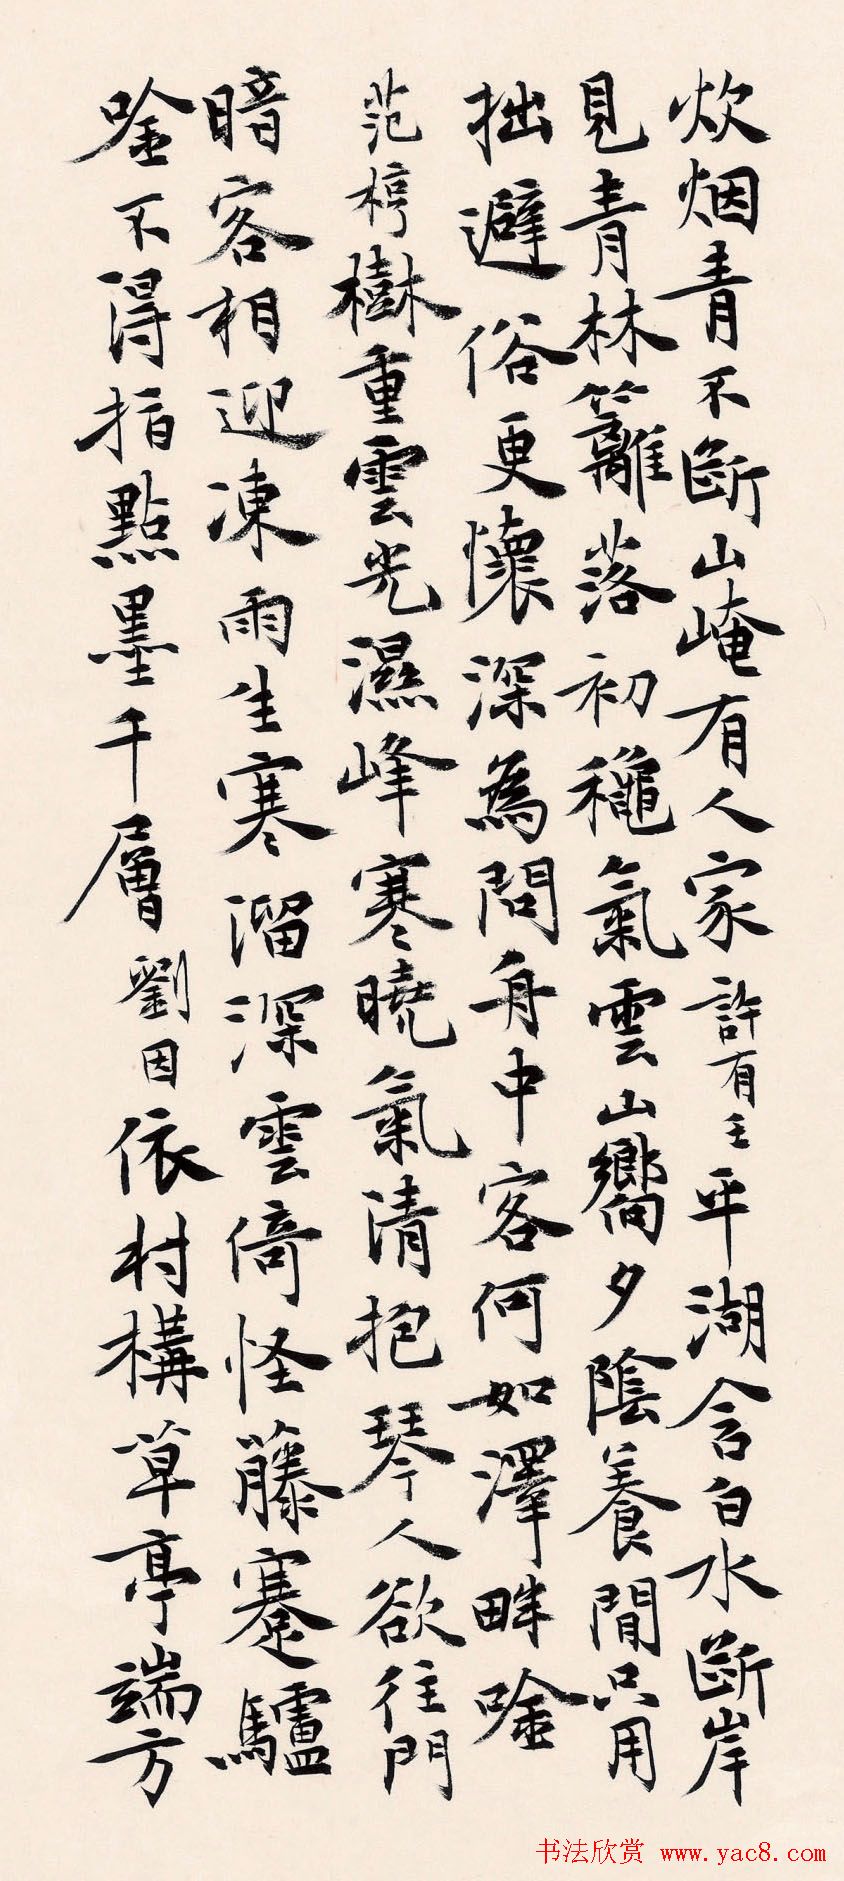 炊烟青不斷山崦有人家許有壬平湖含白水斷岸
見青林籬落初穐氣雲山嚮夕陰養閒只用
拙避俗更懷深為問舟中客何如澤畔唫
范梈樹重雲光濕峰寒曉氣清抱琴人欲往門
暗客相迎凍雨生寒溜深雲倚怪藤蹇驢
唫不得指點墨千層劉因依村構草亭端方
书法欣赏 www.yac8.com